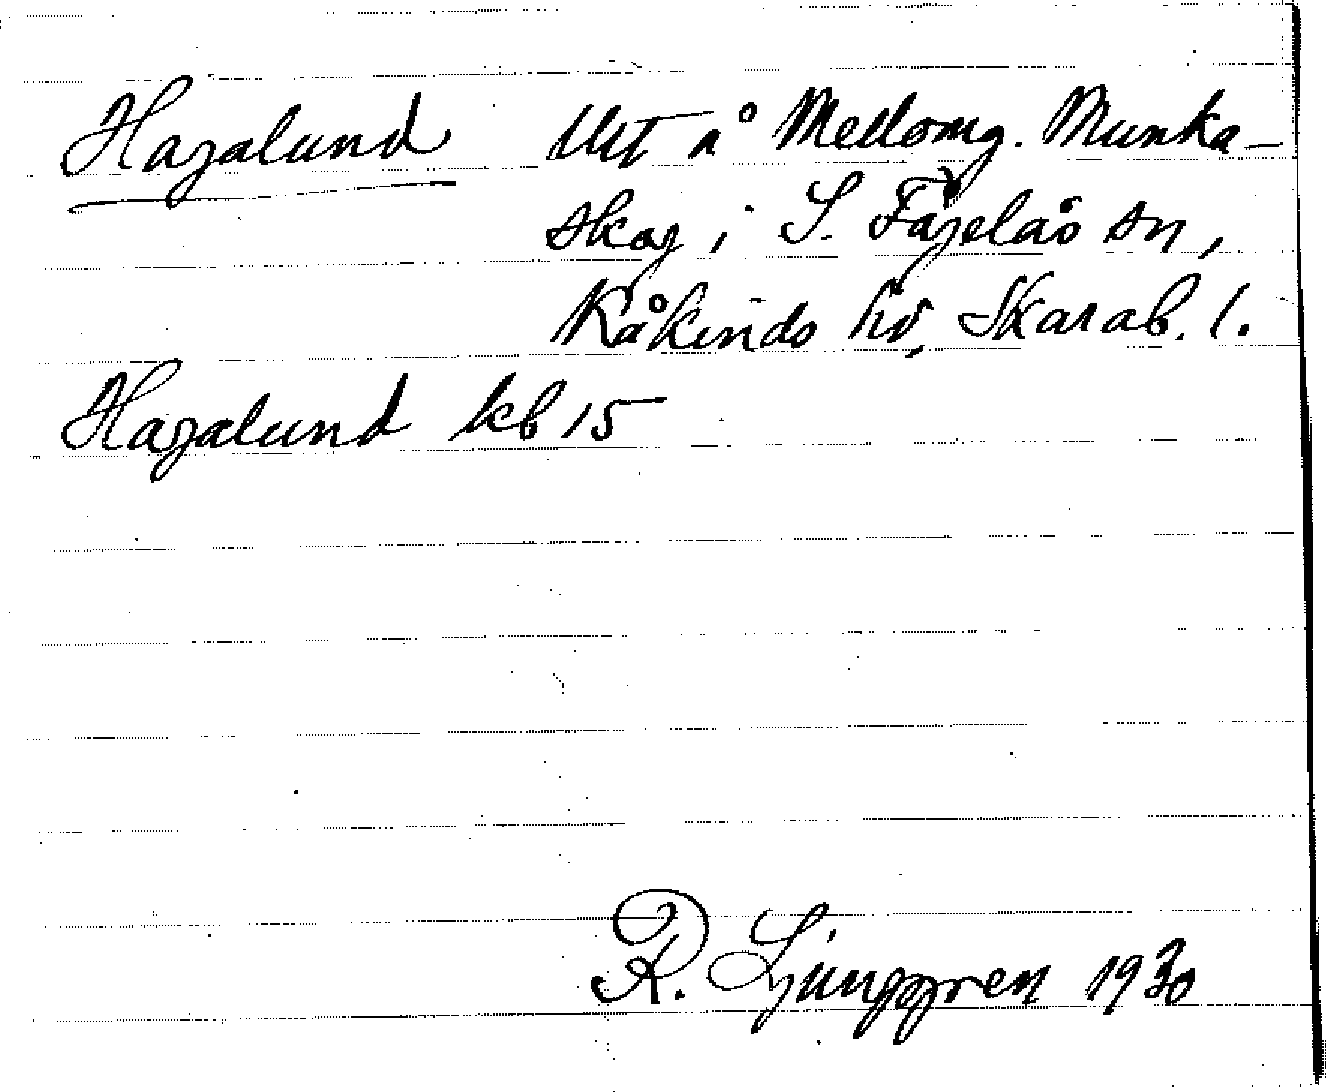 Hagalund Utt å Mellomg. Munka-
skog i S. Fågelås sn,
Kåkinds hd, Skarab. l.
Hagalund kb 15
R. Ljunggren 1930